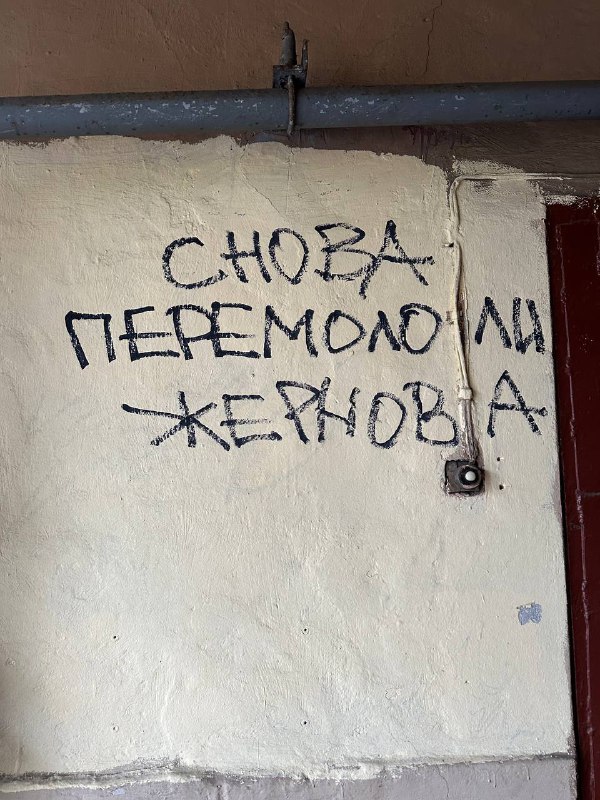 СНОВА
ПЕРЕМОЛОЛИ
ЖЕРНОВА